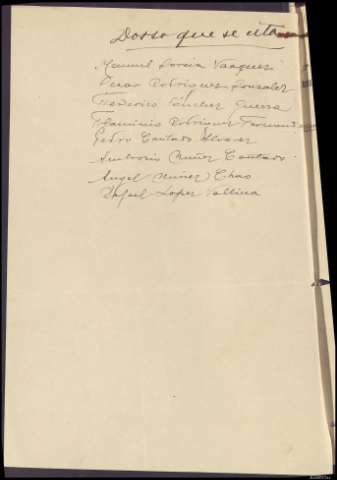 Dosso que se cita
Manuel Garcia Vazquez
Cesar Rodriguez Gonzalez
Federico Sanchez Guerra
Flaminio Rodriguez Fernandez
Pedro Contado Alvarez
Ambrosio Nuñez Contado
Angel Nuñez Chao
Rafael Lopez Vallina